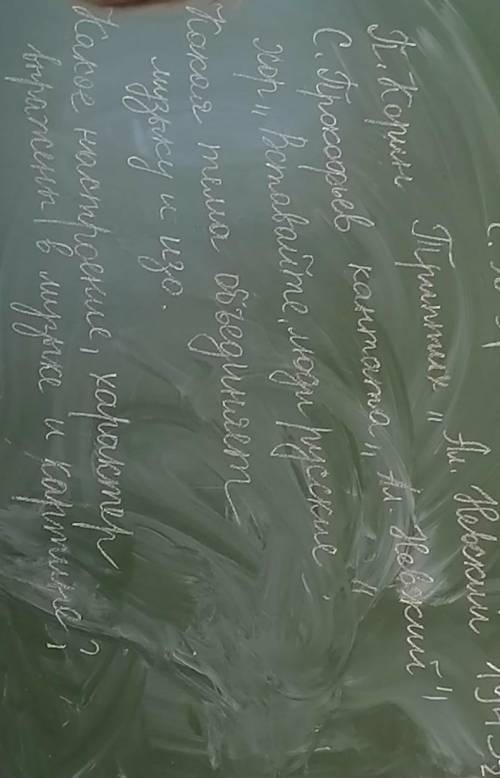 П. Корин Триптих „Ал. Невский
С. Прокофьев кантата „Ал. Невский"
хор „Вставайте, люди русские."
Какая тема объединяет
музыку и изо.
Какое настроение, характер
выражены в музыке и картине?